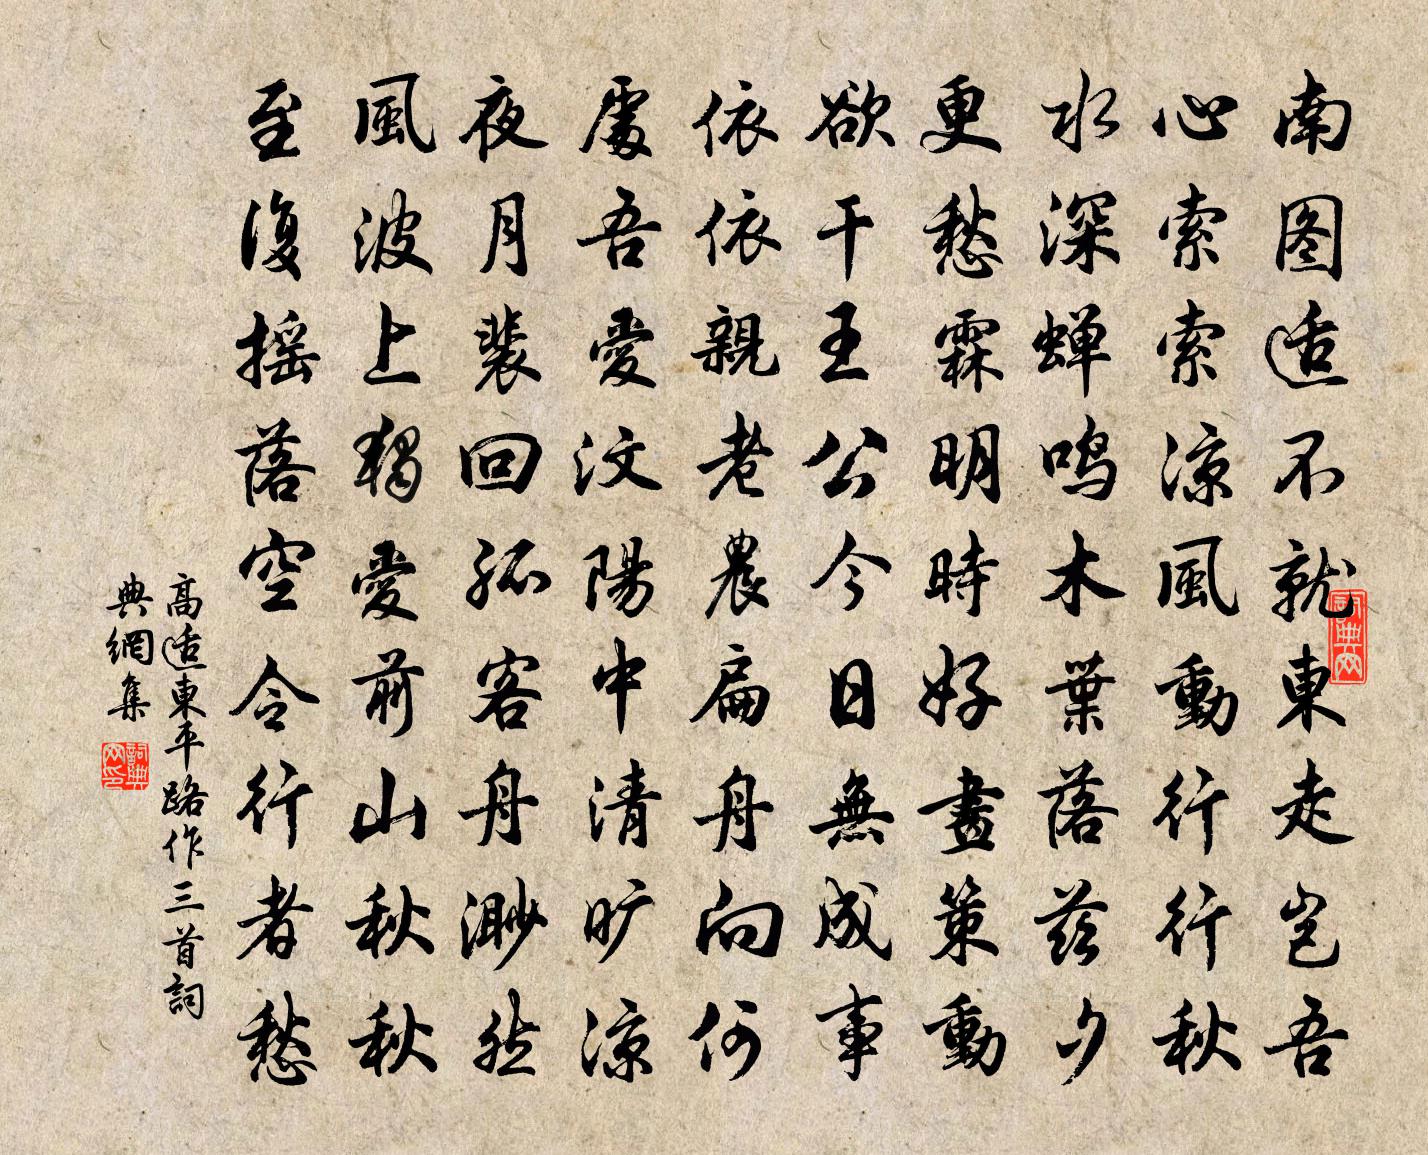 南图适不就東走岂吾
心索索凉風動行行秋
水深蝉鸣木葉落茲夕
更愁霖明時好畫策動
欲干王公今日無成事
依依親老農扁舟向何
處吾愛汶陽中清旷凉
夜月裴回孤客舟渺然
風波上獨愛前山秋秋
至復摇落空令行者愁
高适東平路作三首詞
典網集
詞典网
詞典网印